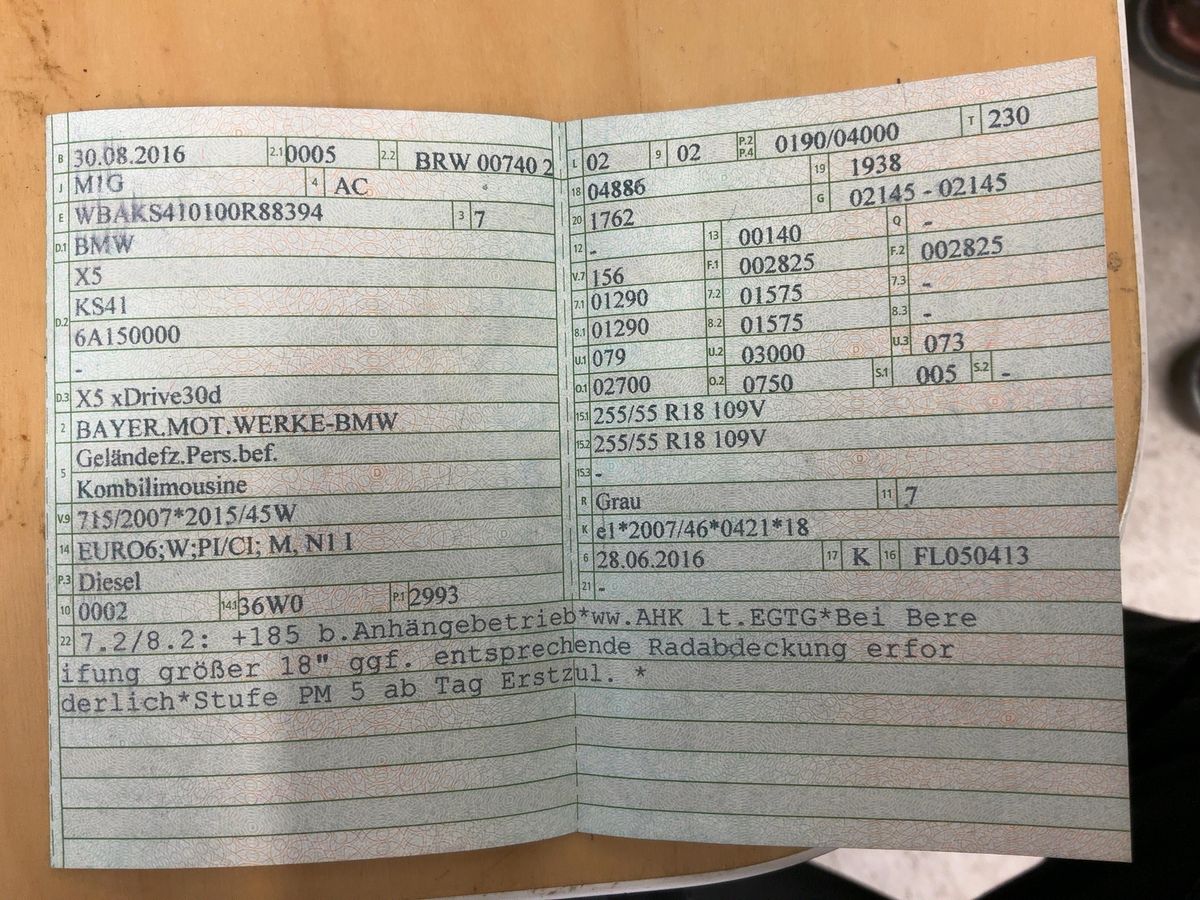 B 30.08.2016 2.1 0005 2.2 BRW 00740 2
J M1G 4 AC
E WBAKS410100R88394 3 7
D.1 BMW
X5
D.2 KS41
6A150000
-
D.3 X5 xDrive30d
2 BAYER.MOT.WERKE-BMW
5 Geländefz.Pers.bef.
Kombilimousine
V.9 715/2007*2015/45W
14 EURO6;W;PI/CI; M, N1 I
P.3 Diesel
10 0002 14.1 36W0 P.1 2993
L 02 9 02 P.2 P.4 0190/04000 T 230
18 04886 19 1938
20 1762 G 02145 - 02145
12 - 13 00140 Q -
V.7 156 F.1 002825 F.2 002825
7.1 01290 7.2 01575 7.3 -
8.1 01290 8.2 01575 8.3 -
U.1 079 U.2 03000 U.3 073
O.1 02700 O.2 0750 S.1 005 S.2 -
15.1 255/55 R18 109V
15.2 255/55 R18 109V
15.3 -
R Grau 11 7
K e1*2007/46*0421*18
6 28.06.2016 17 K 16 FL050413
21 -
22 7.2/8.2: +185 b.Anhängebetrieb*ww.AHK lt.EGTG*Bei Bere
ifung größer 18" ggf. entsprechende Radabdeckung erfor
derlich*Stufe PM 5 ab Tag Erstzul. *